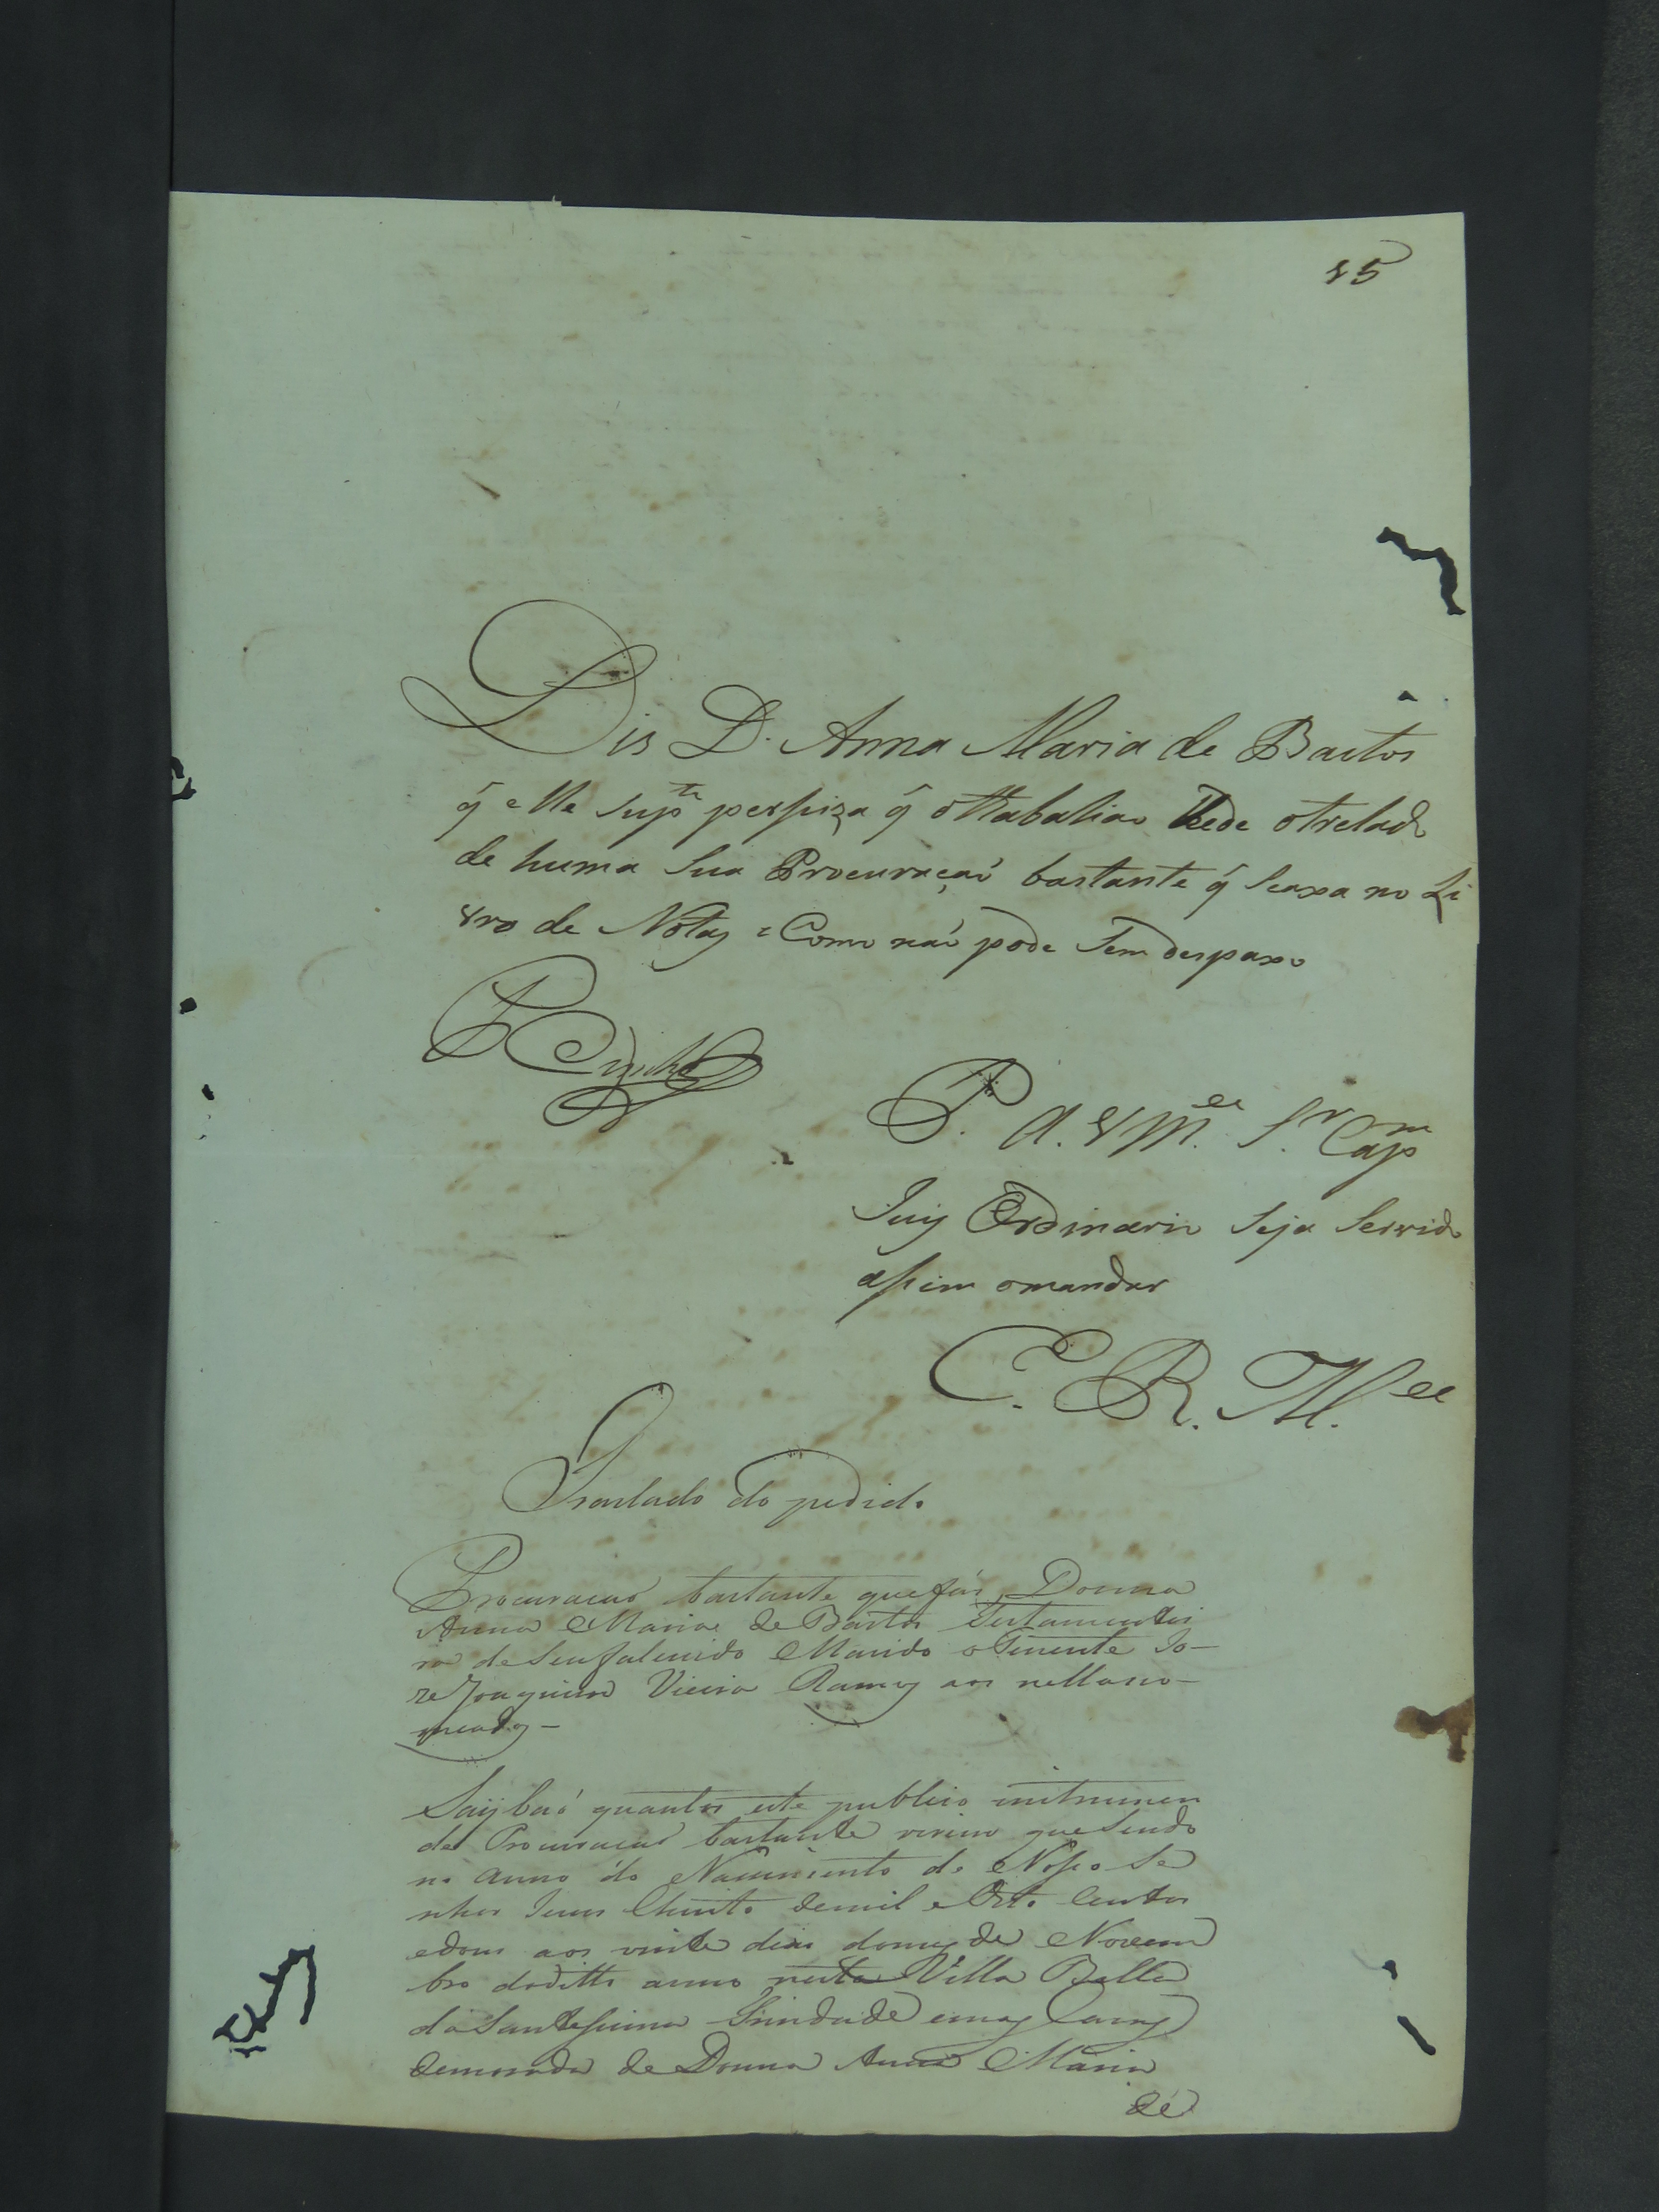 15
Dis D. Anna Maria de Bastos
q̃ ella sup.te persiza q̃ o ttabaliao lhe de o trelado
de huma sua Procuraçaó bastante q̃ se axa no Li
vro de Notas e Como naó pode sem despaxo
P. a. VM.ce S.r Cap.m
Juiz Ordinario seja servido
assim o mandar
E. R. M.ce
Traslado do pedido
Procuracao bastante que fás Donna
Anna Maria de Bastos Testamentei
ra de seu falecido Marido o Tenente Jo-
ze Joaquim Vieira Ramos aos nella no-
meados -
Saybaó quantos este publico instrumen
de Procuracao bastante virem que sendo
no anno do Nacimento de Nosso Se
nhor Jezus Christo de mil e Oito Centos
e dous aos vinte dias do mez de Novem
bro do ditto anno nesta Villa Bella
da Santissima Trindade em as Cazas
de morada de Donna Anna Maria
de